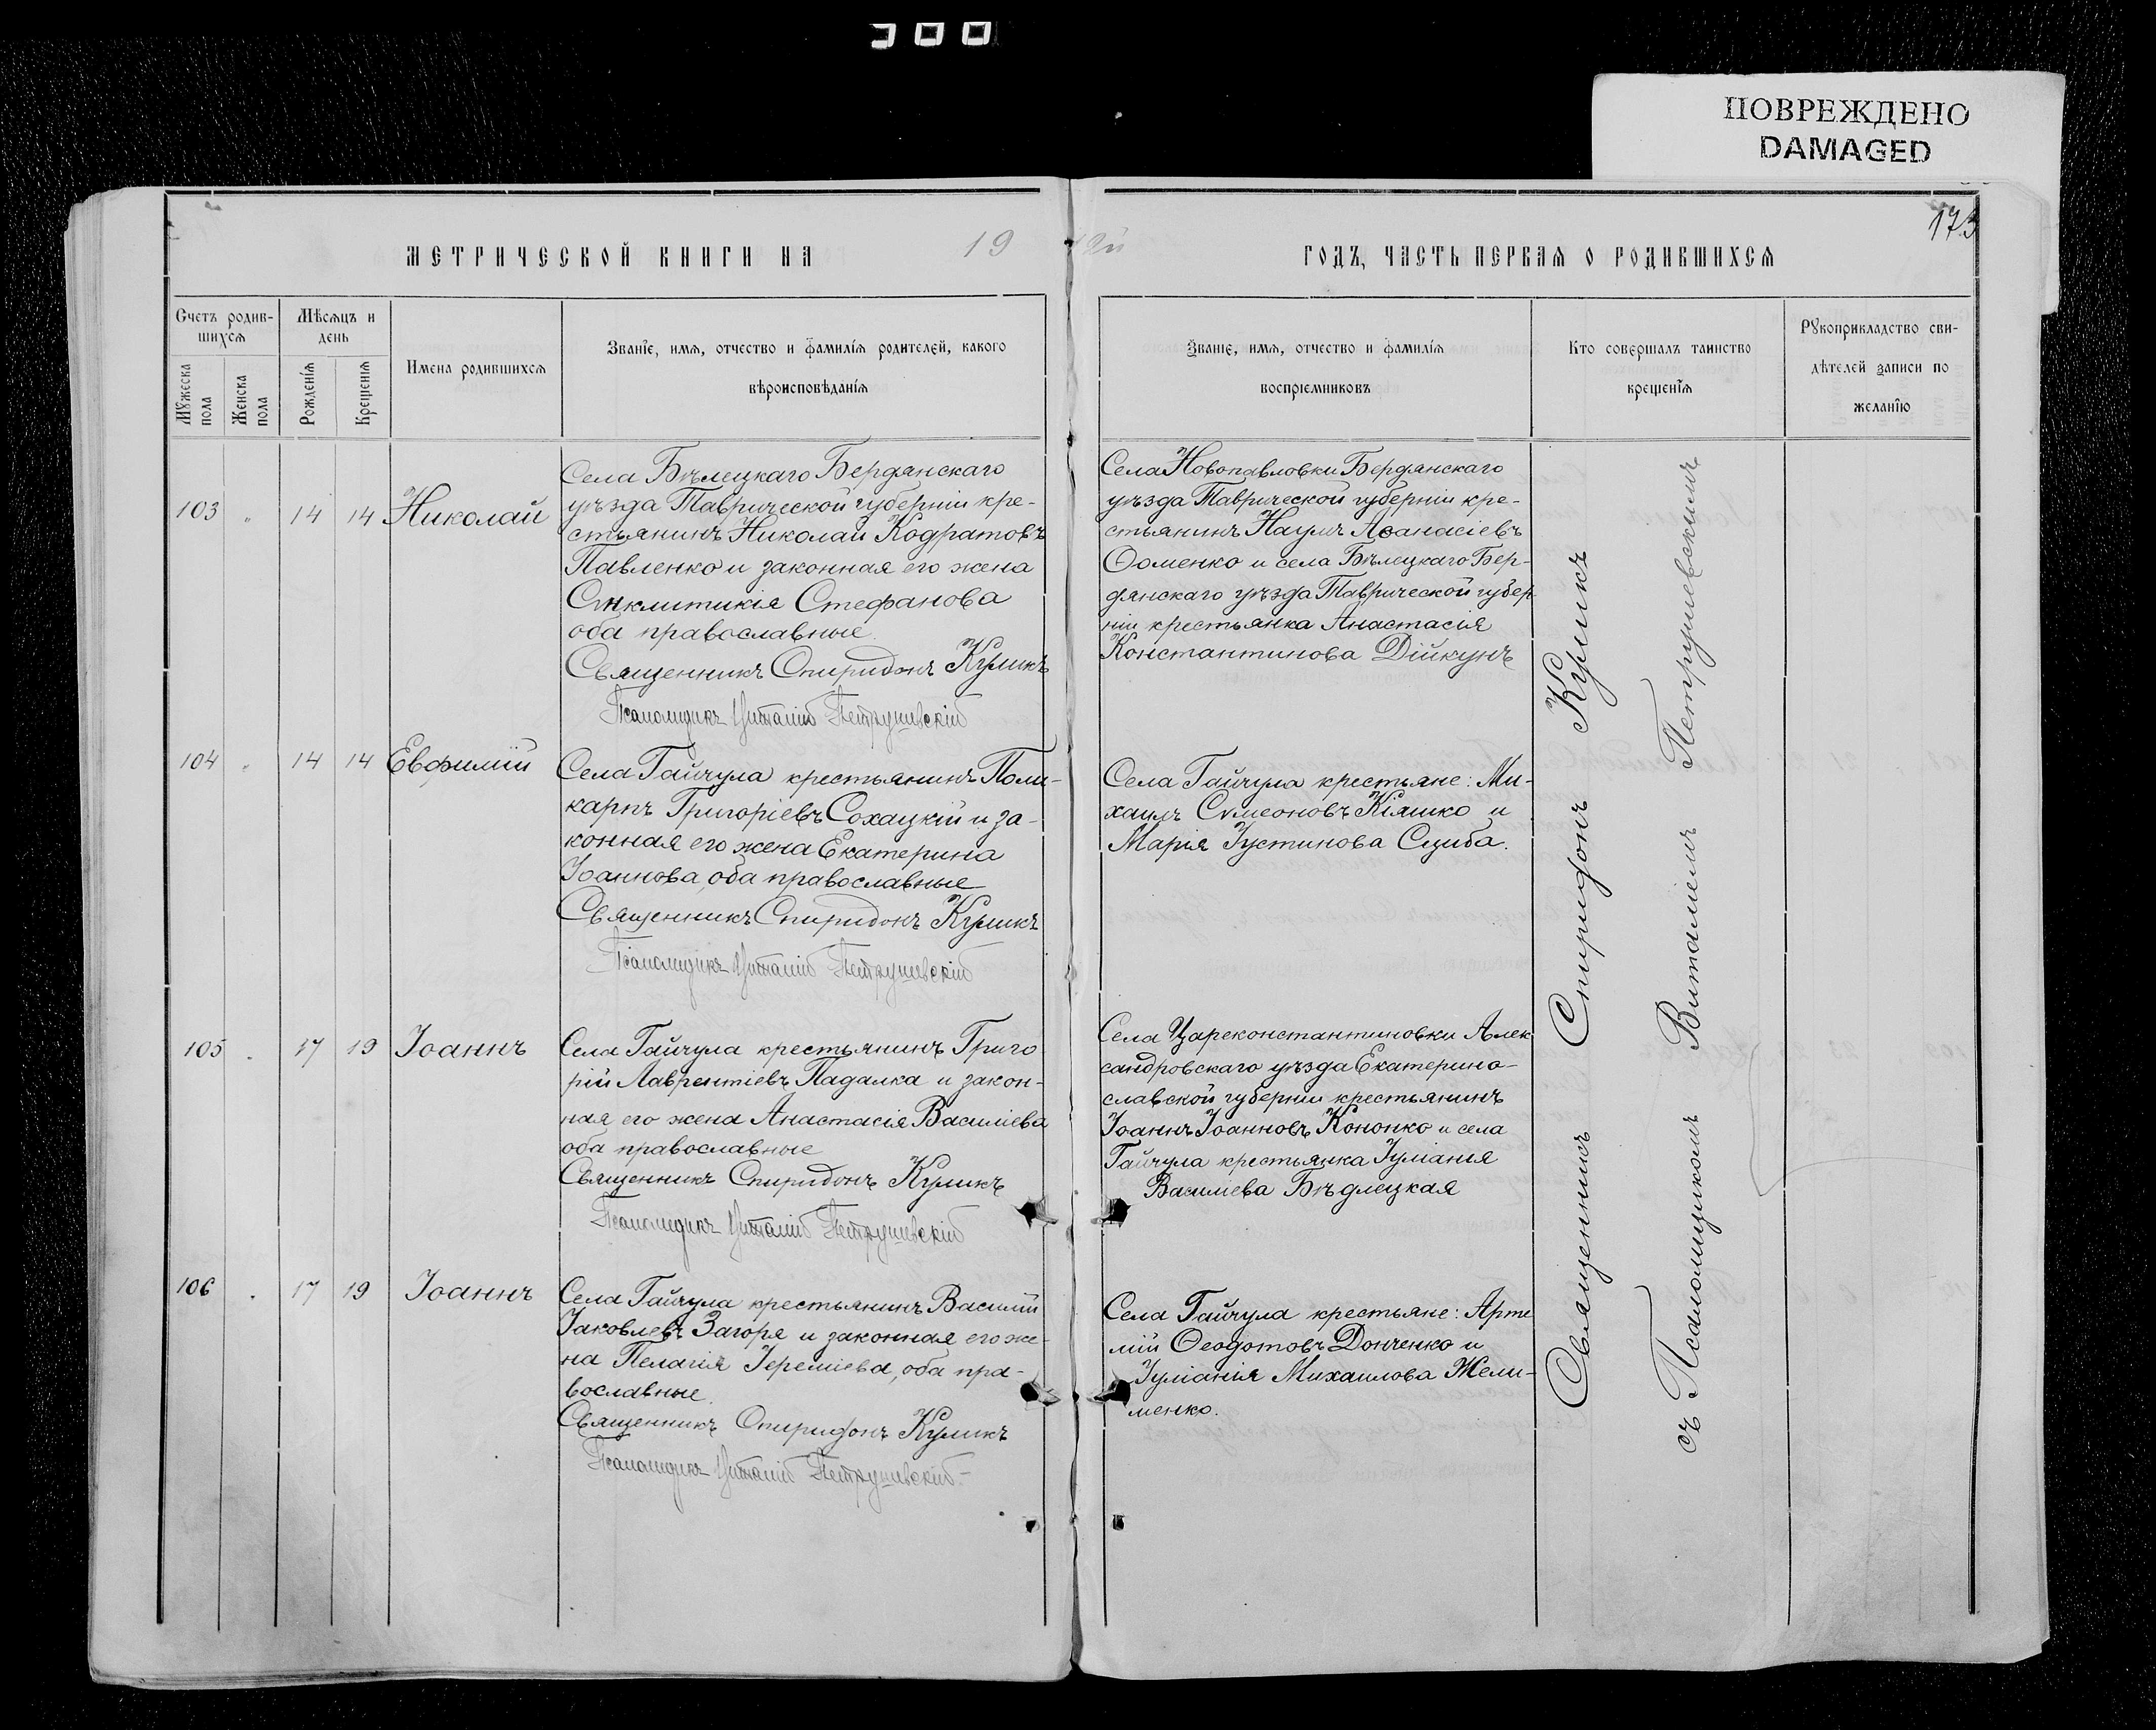 ПОВРЕЖДЕНО
DAMAGED
173
МЕТРИЧЕСКОЙ КНИГИ НА 19
ГОДЪ, ЧАСТЬ ПЕРВАЯ О РОДИВШИХСЯ
Счетъ родив-
шихся
Мѣсяцъ и
день
Мужеска
пола
Женска
пола
Рожденія
Крещенія
Имена родившихся
Званіе, имя, отчество и фамилія родителей, какого
вѣроисповѣданія
Званіе, имя, отчество и фамилія
воспріемниковъ
Кто совершалъ таинство
крещенія
Рукоприкладство сви-
дѣтелей записи по
желанію
103 " 14 14 Николай
Села Бѣлецкаго Бердянскаго
уѣзда Таврической губерніи кре-
стьянинъ Николай Кодратовъ
Павленко и законная его жена
Сѵнклитикія Стефанова
оба православные.
Священникъ Спиридонъ Куликъ
Псаломщикъ Виталій Петрушевскій
Села Новопавловки Бердянскаго
уѣзда Таврической губерніи кре-
стьянинъ Наумъ Аѳанасіевъ
Ѳоменко и села Бѣлецкаго Бер-
дянскаго уѣзда Таврической губер-
ніи крестьянка Анастасія
Константинова Дійкунъ
104 " 14 14 Евфимій
Села Гайчула крестьянинъ Поли-
карпъ Григоріевъ Сохацкій и за-
конная его жена Екатерина
Іоаннова, оба православные
Священникъ Спиридонъ Куликъ
Псаломщикъ Виталій Петрушевскій
Села Гайчула крестьяне: Ми-
хаилъ Сѵмеоновъ Кіяшко и
Марія Іустинова Сциба.
105 " 17 19 Іоаннъ
Села Гайчула крестьянинъ Григо
рій Лаврентіевъ Падалка и закон-
ная его жена Анастасія Василіева
оба православные
Священникъ Спиридонъ Куликъ
Псаломщикъ Виталій Петрушевскій
Села Цареконстантиновки Алек
сандровскаго уѣзда Екатерино-
славской губерніи крестьянинъ
Іоаннъ Іоанновъ Кононко и села
Гайчула крестьянка Іуліанія
Василіева Бѣдлецкая
106 " 17 19 Іоаннъ
Села Гайчула крестьянинъ Василій
Іаковлевъ Загоря и законная его же-
на Пелагія Іереміева, оба пра-
вославные.
Священникъ Спиридонъ Куликъ
Псаломщикъ Виталій Петрушевскій
Села Гайчула крестьяне: Арте
мій Ѳеодотовъ Донченко и
Іуліанія Михаилова Жели-
менко.
Священникъ Спиридонъ Куликъ
съ Псаломщикомъ Виталіемъ Петрушевскимъ